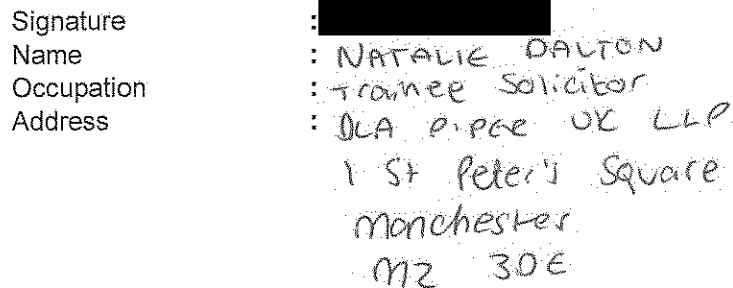 Signature :
Name : NATALIE DALTON
Occupation : Trainee Solicitor
Address : DLA PIPER UK LLP
1 St Peter's Square
Manchester
M2 3DE